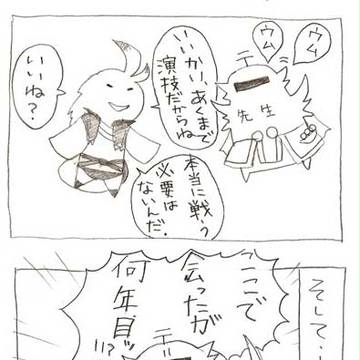 ウム
ウム
デ
先生
いいかい、あくまで
演技だからね
いいね？
本当に戦う
必要は
ないんだ。
そして、
ここで
会ったが
何年目ッ
!!?